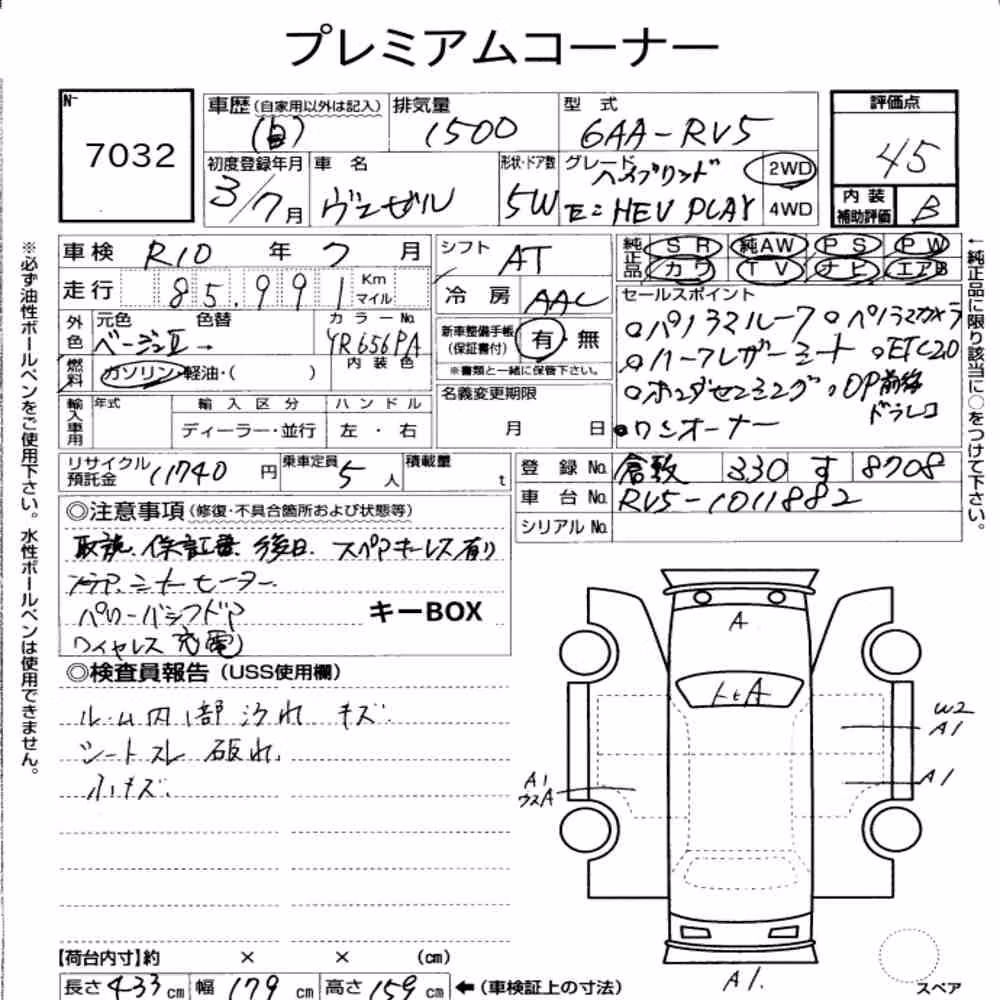 プレミアムコーナー
N-
7032
車歴(自家用以外は記入)
(自)
排気量
1500
型 式
6AA-RV5
評価点
45
初度登録年月
3/7月
車 名
ヴェゼル
形状・ドア数
5W
グレード
ハイブリッド
e:HEV PLAY
2WD
4WD
内装
補助評価
B
車検 R10 年 7 月
走行 85,991 Km
マイル
シフト AT
冷房 AAC
純正品
SR 純AW PS PW
カワ TV ナビ エアB
外色
元色 色替
ベージュⅡ→
カラーNo.
YR656PA
内装色
燃料
ガソリン・軽油・( )
新車整備手帳
(保証書付)
有・無
※書類と一緒に保管下さい。
名義変更期限
月 日
セールスポイント
○パノラマルーフ ○パノラマカメラ
○ハーフレザーシート ○ETC2.0
○ホンダセンシング ○OP前後
ドラレコ
●ワンオーナー
輸入車用
年式 輸入区分 ハンドル
ディーラー・並行 左・右
リサイクル
預託金
11740 円
乗車定員
5人
積載量
t
登録No. 倉敷 330 す 8708
車台No. RV5-1011882
シリアルNo.
◎注意事項(修復・不具合箇所および状態等)
取説、保証書、後日、スペアキーレス有り
シートヒーター
パワーバックドア
ワイヤレス充電
キーBOX
◎検査員報告(USS使用欄)
ルーム内部汚れ キズ
シートスレ 破れ
小キズ
※必ず油性ボールペンをご使用下さい。水性ボールペンは使用できません。
←純正品に限り該当に○をつけて下さい。
A
トビA
W2
A1
A1
A1
ウスA
A1.
スペア
【荷台内寸】約 × × (cm)
長さ 433 cm 幅 179 cm 高さ 159 cm ←(車検証上の寸法)